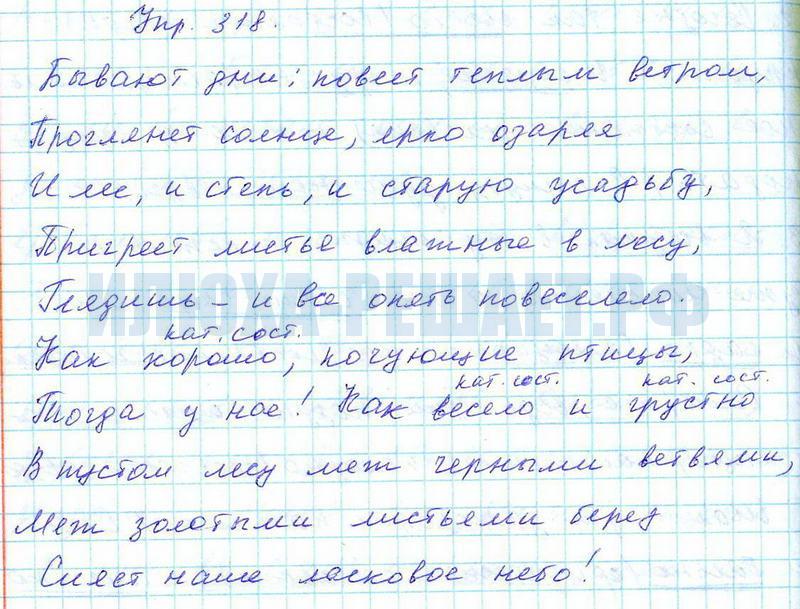 Упр. 318.
Бывают дни: повеет теплым ветром,
Проглянет солнце, ярко озаряя
И лес, и степь, и старую усадьбу,
Пригреет листья влажные в лесу,
Глядишь – и все опять повеселело.
ИЛЮХА-РЕШАЕТ.РФ
кат. сост.
Как хорошо, кочующие птицы,
кат. сост. кат. сост.
Тогда у нас! Как весело и грустно
В пустом лесу меж черными ветвями,
Меж золотыми листьями берез
Сияет наше ласковое небо!